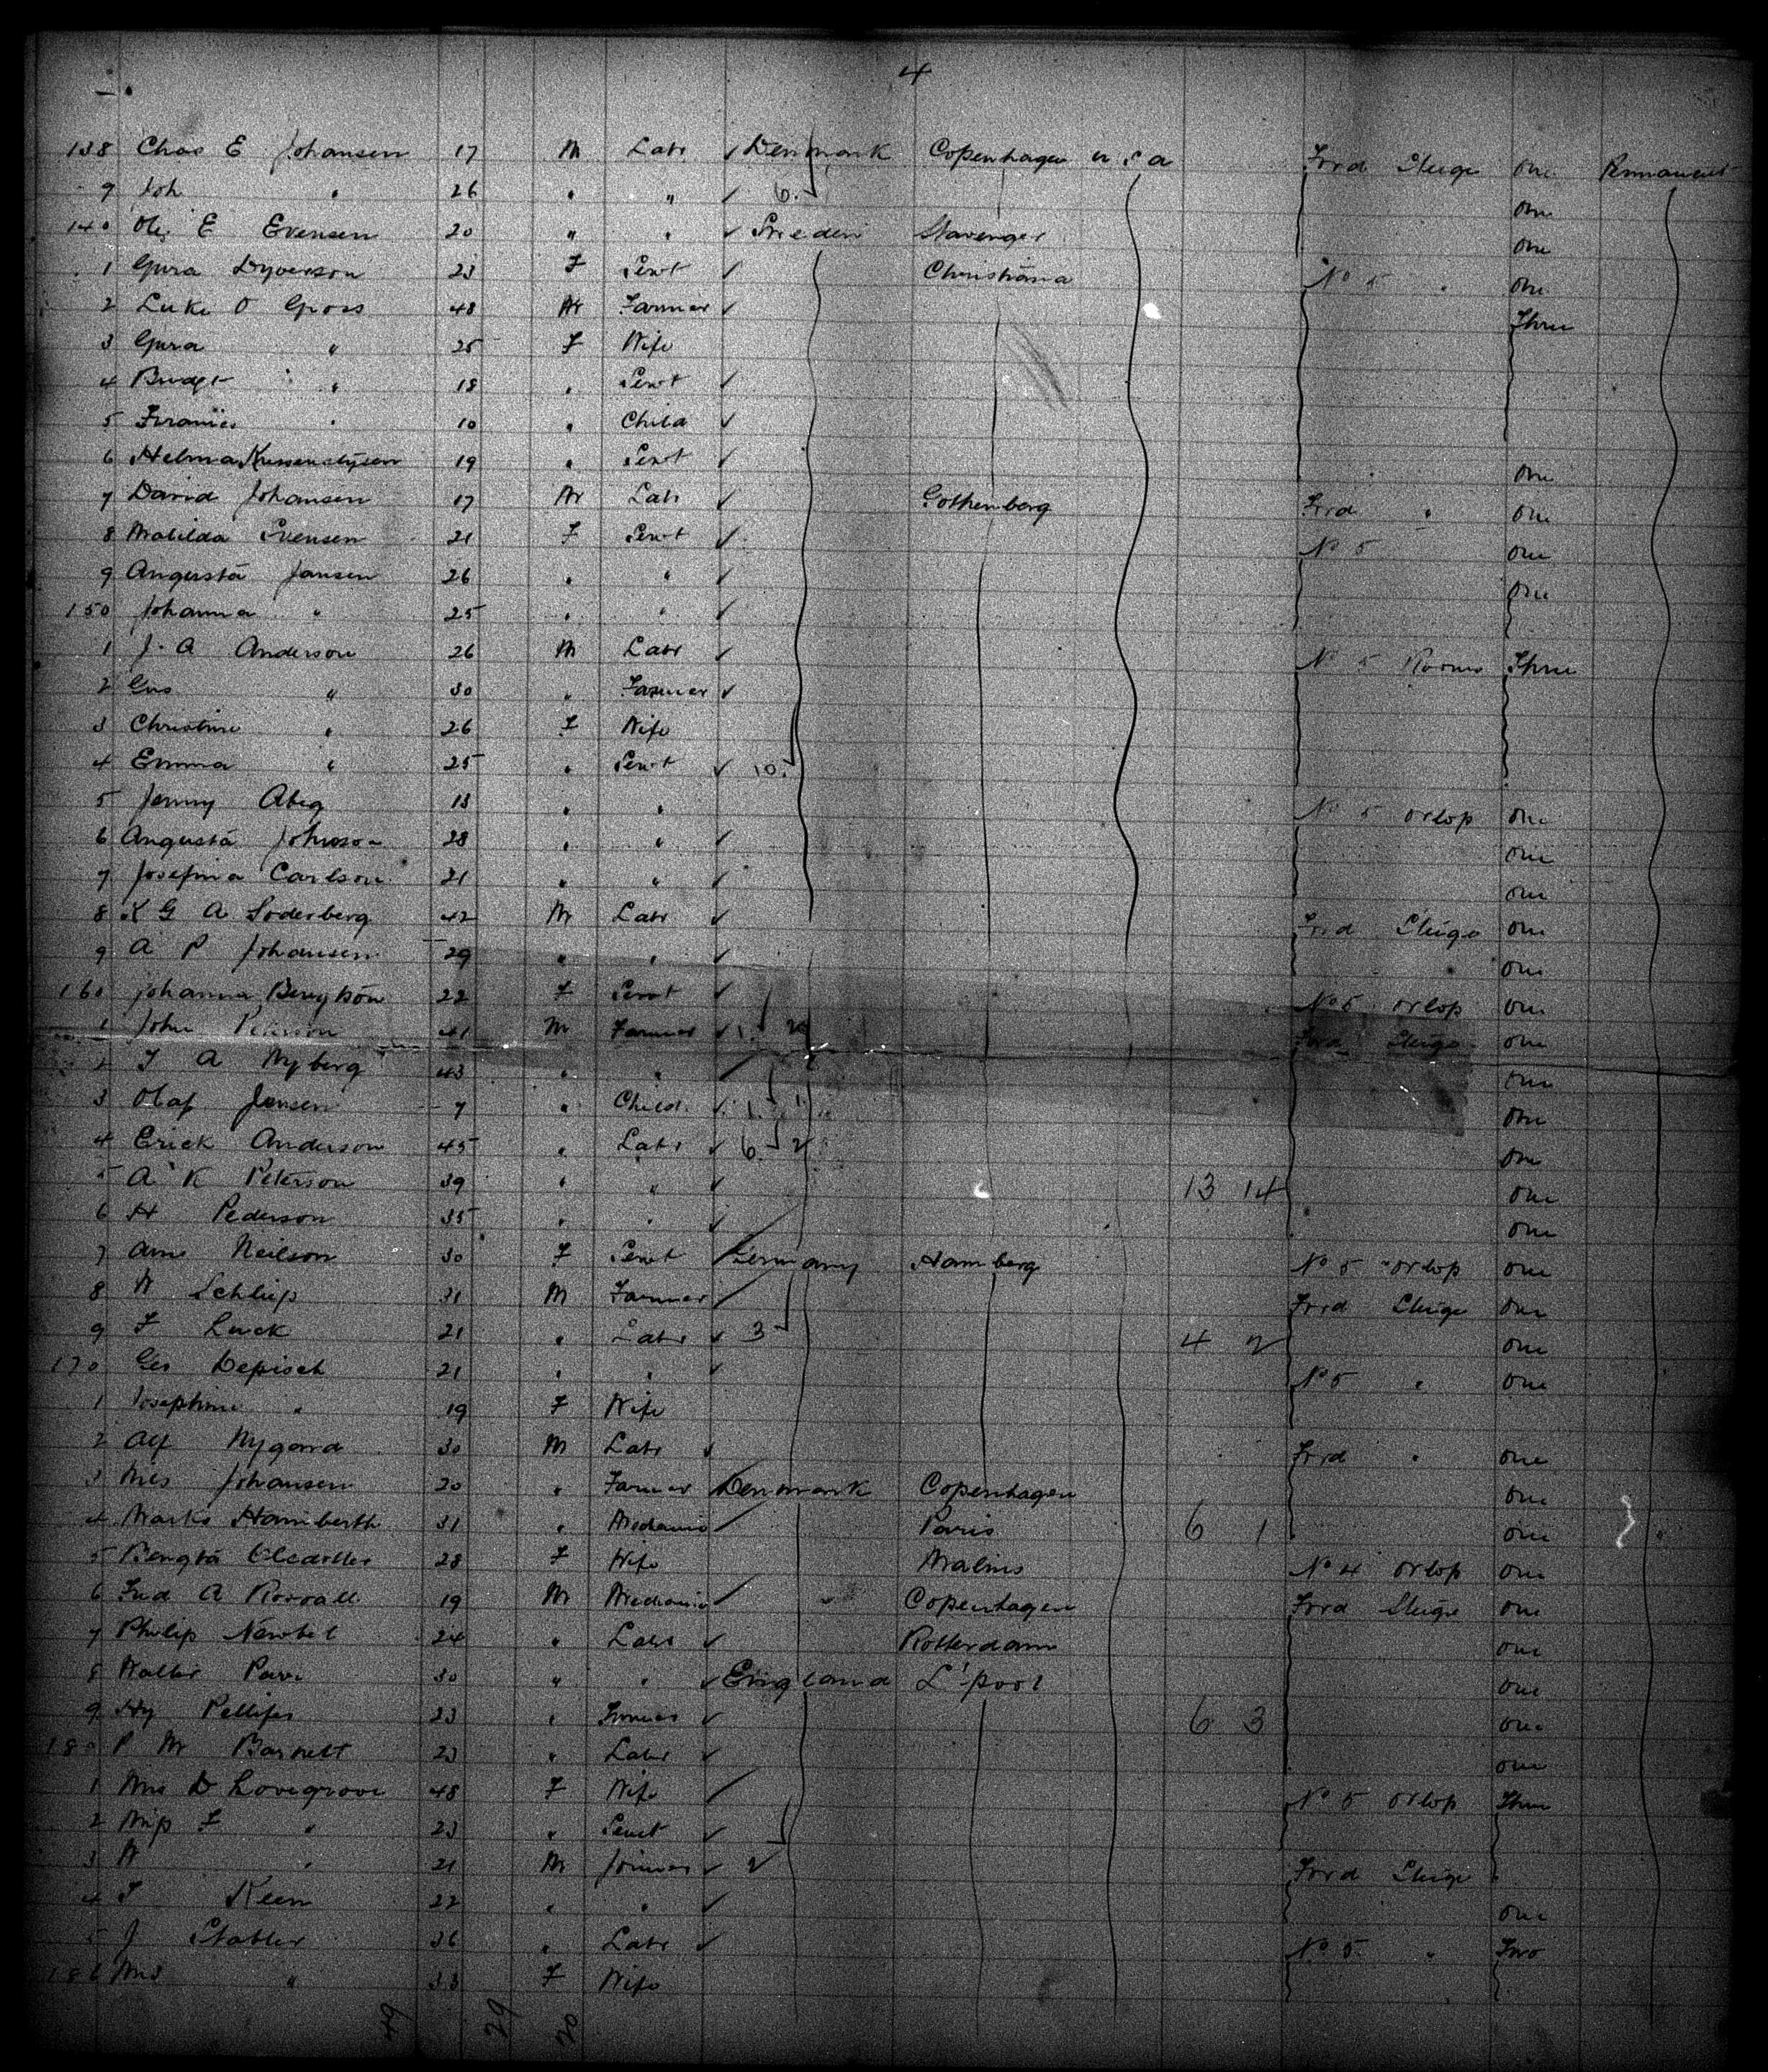 4
138 Chas E Johansen 17 M Labr Denmark Copenhagen U.S.A Frd Stege one Permanent
9 Joh " 26 " " 6 one
140 E Evensen 20 " " Sweden Stavenger one
1 Gura Dyverson 23 F Servt Christiana No 5 " one
2 Luke O Gross 48 M Farmer Three
3 Gura " 25 F Wife
4 Bridgt " 18 " Servt
5 " 10 " Child
6 Helma 19 " Servt one
7 David Johansen 17 M Labr Gothenberg Frd " one
8 Matilda Svensen 21 F Servt No 5 one
9 Angusta Jansen 26 " " one
150 Johanna " 25 " "
1 J. A Anderson 26 M Labr No 5 Rooms Three
2 Gus " 30 " Farmer
3 Christine " 26 F Wife
4 Emma " 25 " Servt 10
5 Jenny Abeg 18 " " No 5 orlop one
6 Angusta Johnson 28 " " one
7 Josefina Carlson 21 " " one
8 K G A Soderberg 42 M Labr Frd Stege one
9 A P Johansen 29 " " one
160 Johanna Bengtson 22 F Servt No 5 orlop one
1 John Peterson 41 M Farmer 1 2 Frd Stege one
2 J A Nyberg 43 " " one
3 Olaf Jensen 7 " Child 1 1 one
4 Erick Anderson 45 " Labr 6 2 one
5 A K Peterson 39 " " 13 14 one
6 H Pederson 35 " " one
7 Ane Neilson 30 F Servt Germany Hamberg No 5 orlop one
8 W Schlup 31 M Farmer Frd Stege one
9 F Luck 21 " Labr 3 4 2 one
170 Geo Depisch 21 " " No 5 " one
1 Josephine " 19 F Wife
2 Alf Nygarrd 30 M Labr Frd " one
3 Nels Johansen 20 " Farmer Denmark Copenhagen one
4 Marks Hamberth 31 " Mechanic Paris 6 1 one
5 Bengta 28 F Wife Malms No 4 orlop one
6 Fred A Rosvall 19 M Mechanic " Copenhagen Frd Stege one
7 Philip 24 " Labr Rotterdam one
8 Walter 30 " " England L'pool one
9 Hy Pellifer 23 " Farmer 6 3 one
180 P M Barnett 23 " Labr one
1 Mrs D Lovegrove 48 F Wife No 5 orlop Three
2 Miss F " 23 " Servt
3 W " 21 M Joiner 2 Frd Stege
4 J Keen 22 " " one
5 J Stabler 36 " Labr No 5 " Two
186 Mrs " 33 F Wife
49 29 20